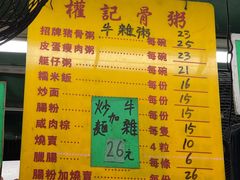 權記骨粥
牛雜粥
招牌豬骨粥 每碗 23
皮蛋瘦肉粥 每碗 25
艇仔粥 每碗 23
糯米飯 每碗 21
炒面 每份 16
腸粉 每份 15
咸肉粽 每隻 15
燒賣 4粒 10
臘腸 每條 6
腸粉加燒賣 每份 26
炒麵加牛雜
26元